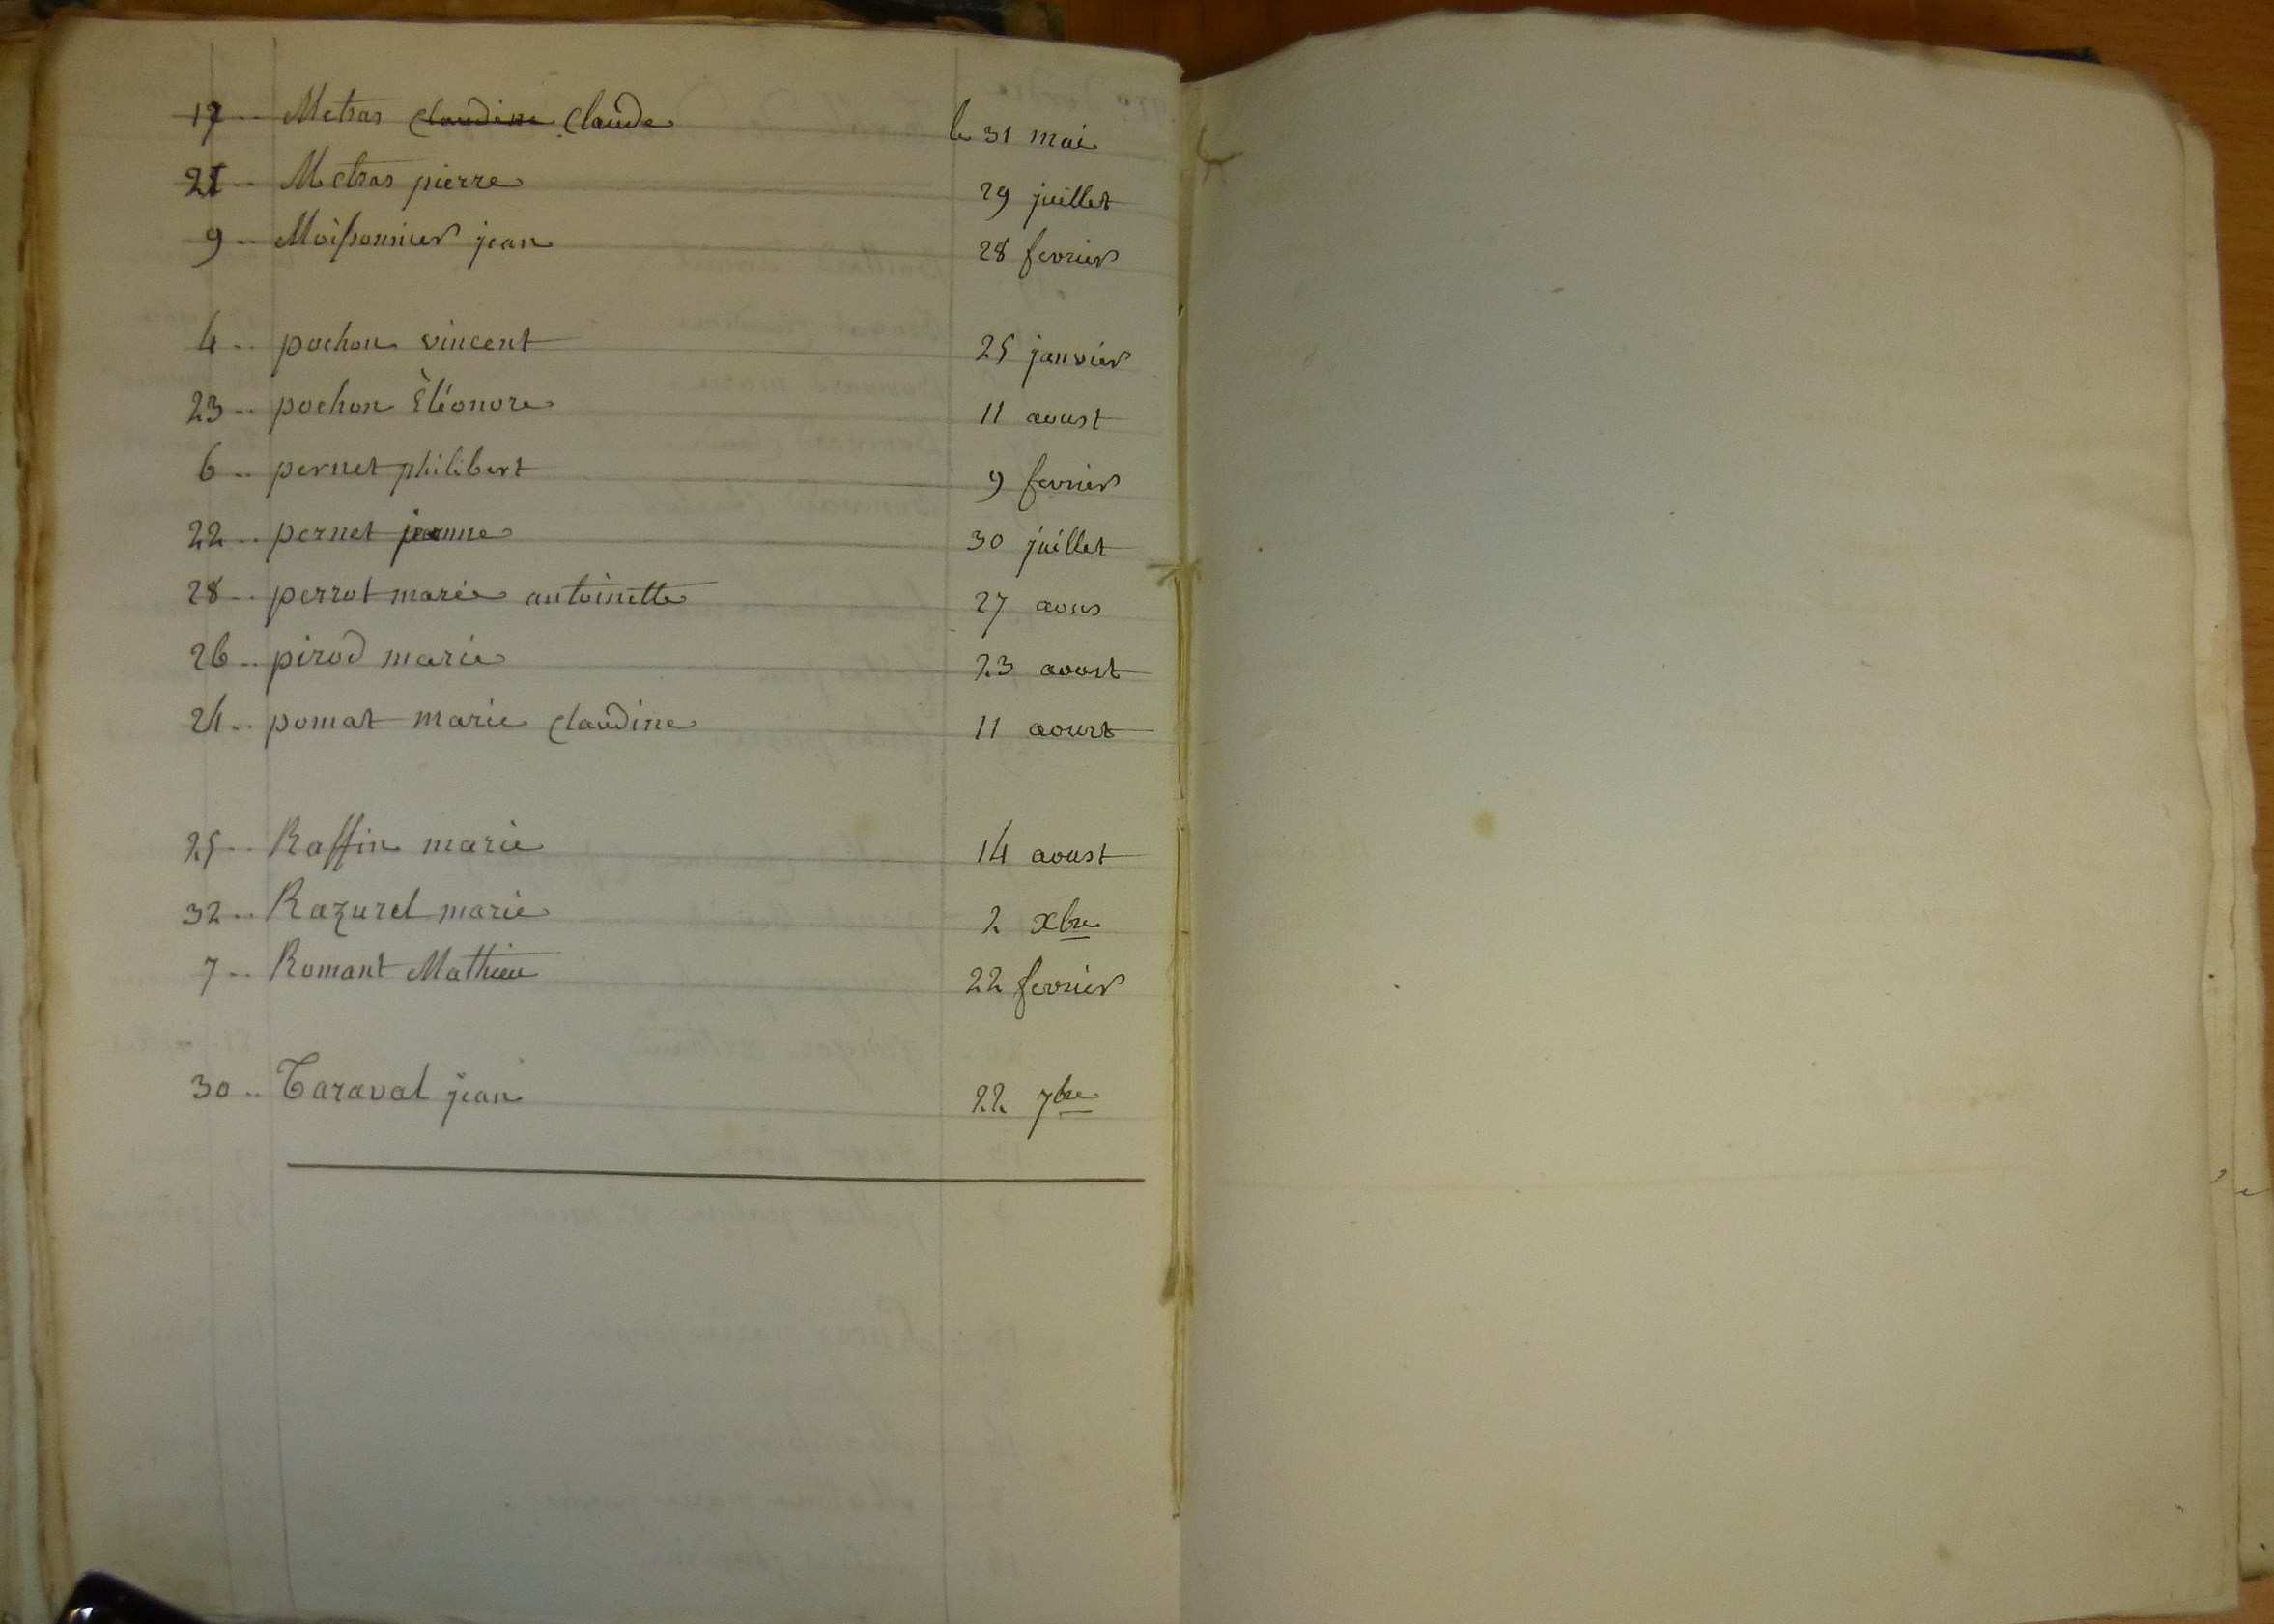 17 .. Metras Claudine Claude le 31 mai
21 .. Metras pierre 29 juillet
9 .. Moissonnier jean 28 fevrier
4 .. pochon vincent 25 janvier
23 .. pochon Eléonore 11 aoust
6 .. pernet philibert 9 fevrier
22 .. pernet jeanne 30 juillet
28 .. perrot marie antoinette 27 aous
26 .. pirod marie 23 aoust
24 .. pomat marie Claudine 11 aoust
25 .. Raffin marie 14 aoust
32 .. Razurel marie 2 xbre
7 .. Romant Mathieu 22 fevrier
30 .. Taraval jean 22 7bre